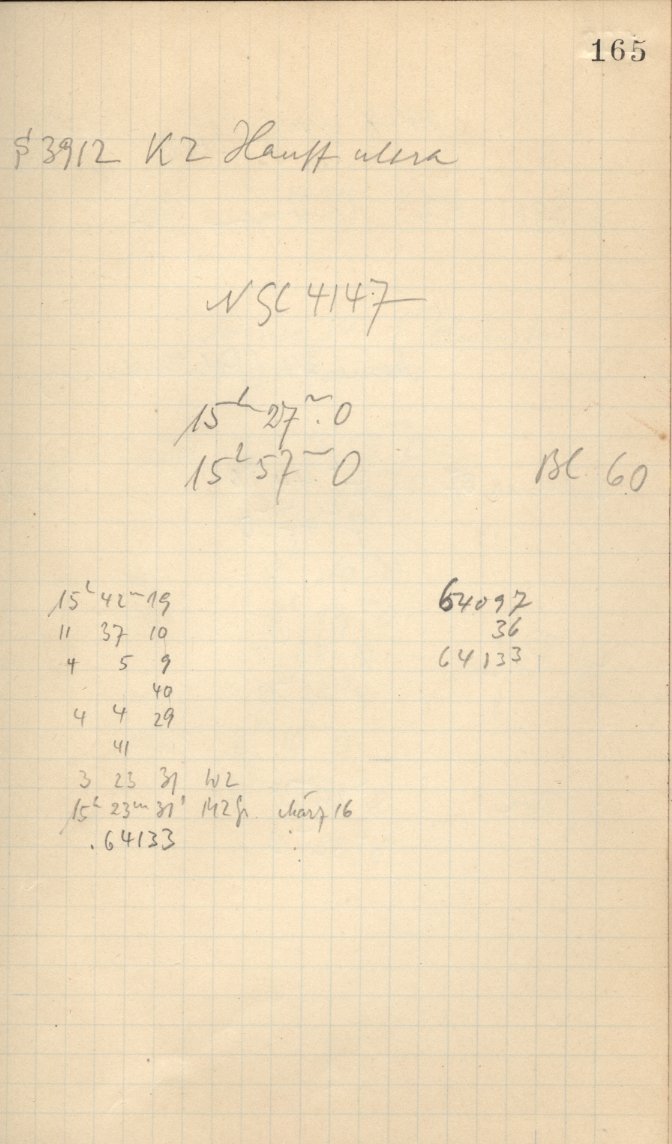 165
S 3912 K2 Hauff ultra
NGC 4147
15ʰ 27ᵐ.0
15ʰ 57ᵐ 0
Bl. 60
15ʰ 42ᵐ 19
11 37 10
4 5 9
40
4 4 29
41
3 23 31
15ʰ 23ᵐ 31ˢ März 16
.64133
64097
36
64133